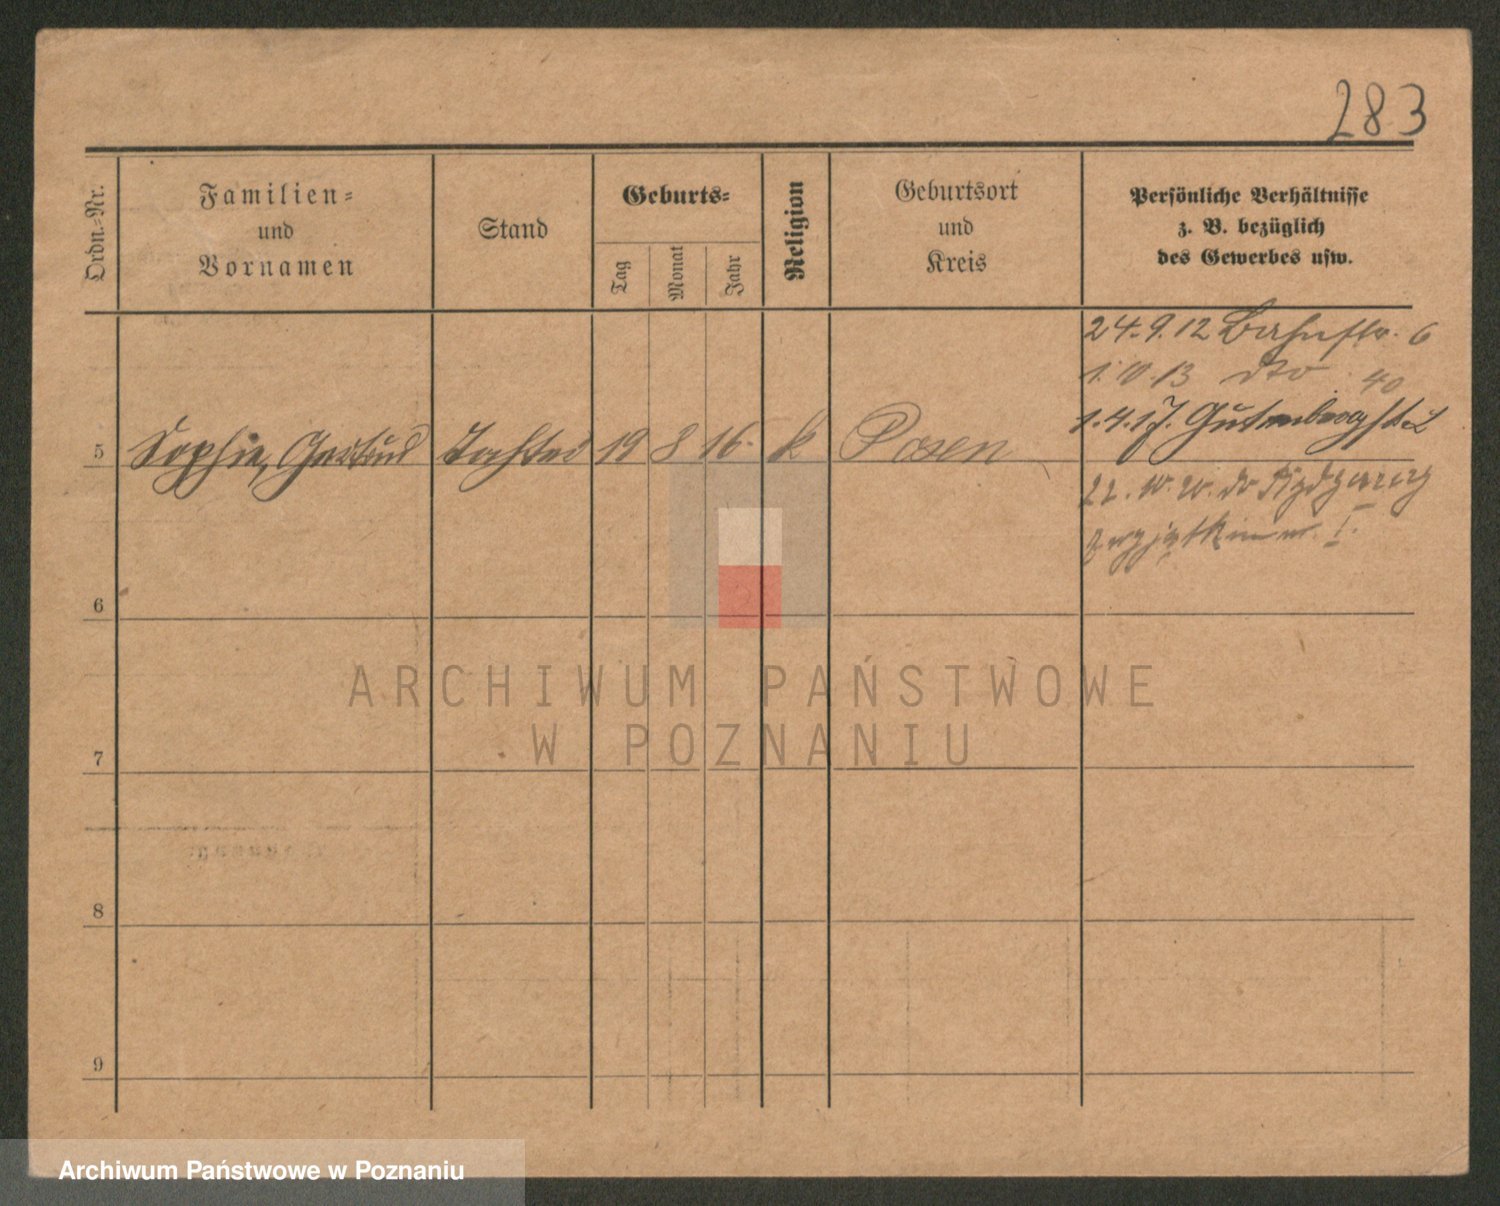 283
Ordn.-Nr.
Familien-
und
Vornamen
Stand
Geburts-
Tag
Monat
Jahr
Religion
Geburtsort
und
Kreis
Persönliche Verhältnisse
z. B. bezüglich
des Gewerbes usw.
24.9.12 Bahnstr. 6
1.10.13 dto 40
1.4.17. Gutenbergstr.
5 Sophie, Gertrud Tochter 19 8 16 k Posen
22.10.20. do Bydgoszczy
6
7
8
9
ARCHIWUM PAŃSTWOWE
W POZNANIU
Archiwum Państwowe w Poznaniu